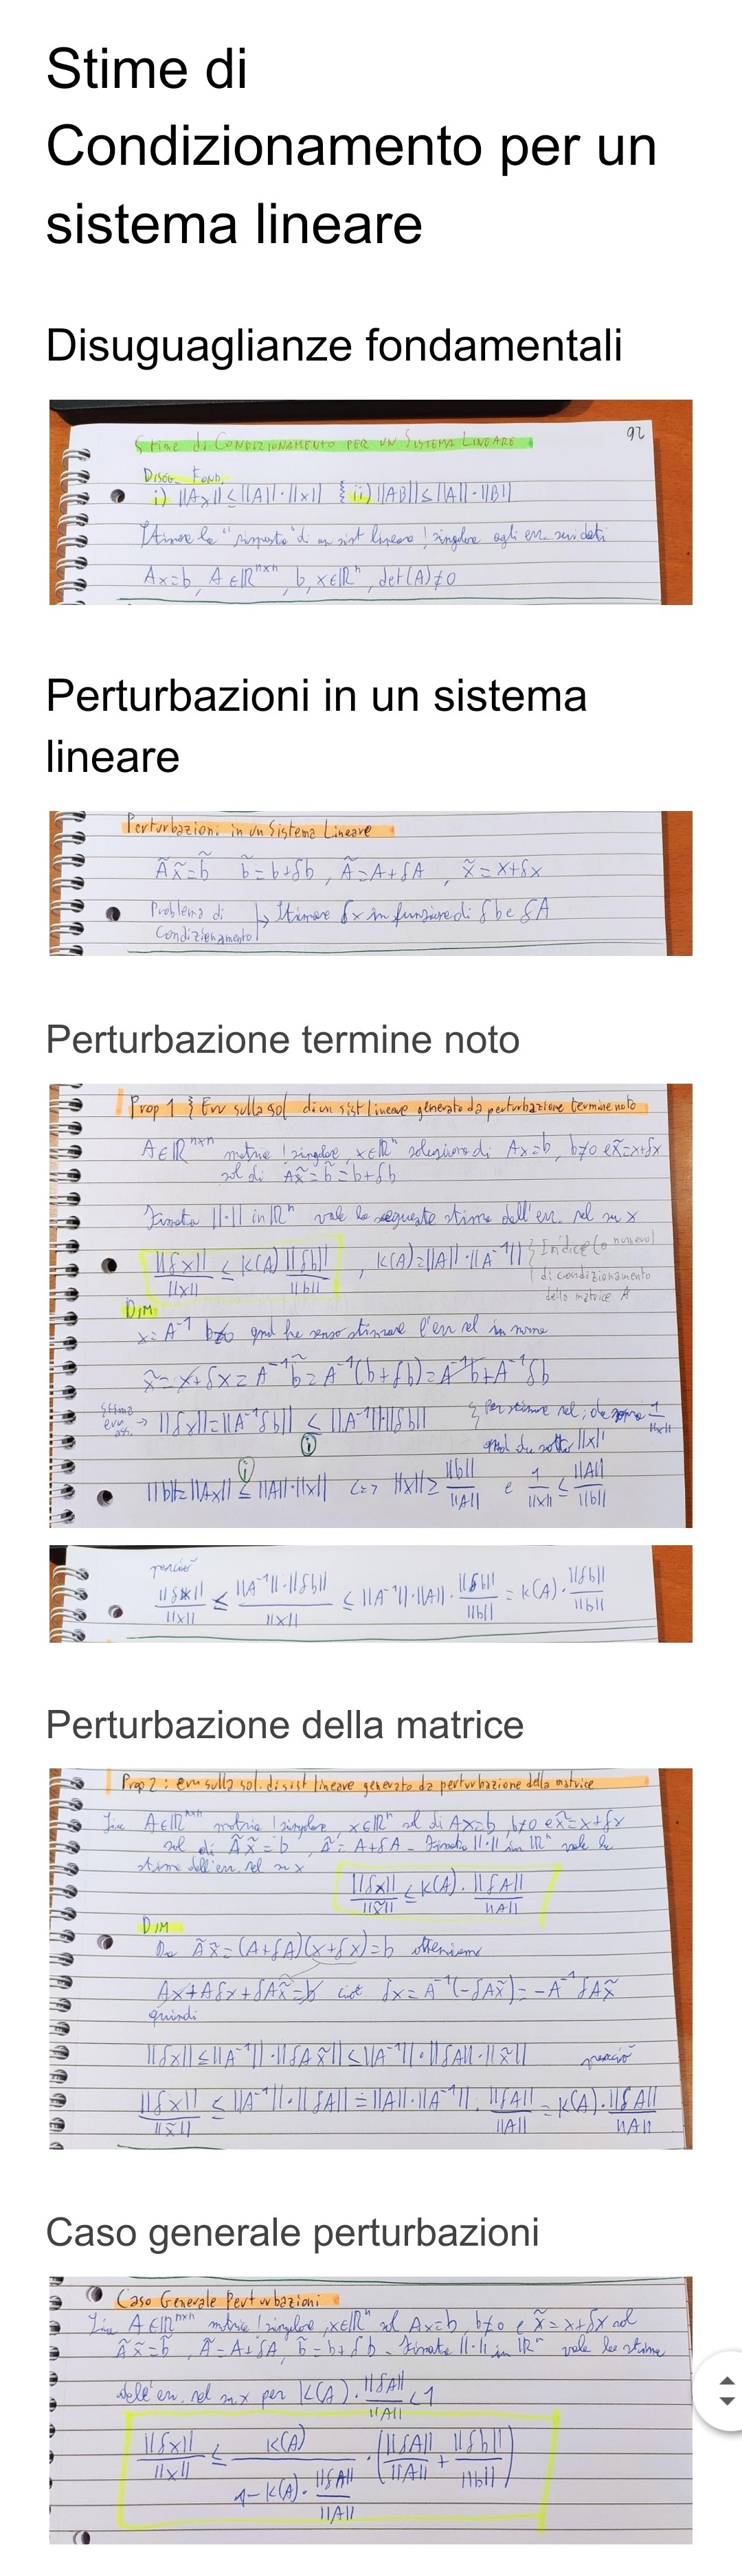 Stime di
Condizionamento per un
sistema lineare
Disuguaglianze fondamentali
Stime di Condizionamento per un Sistema Lineare
92
Disug. Fond.
i) ||Ax|| ≤ ||A||·||x|| ii) ||AB|| ≤ ||A||·||B||
Stimare la "risposta" di un sist lineare !singolare agli err. sui dati
Ax=b, A∈ℝⁿˣⁿ, b,x∈ℝⁿ, det(A)≠0
Perturbazioni in un sistema
lineare
Perturbazioni in un Sistema Lineare
Ãx̃=b̃ b̃=b+δb, Ã=A+δA, x̃=x+δx
Problema di
Condizionamento
↳ Stimare δx in funzione di δb e δA
Perturbazione termine noto
Prop 1 } Err sulla sol di un sist lineare generato da perturbazione termine noto
A∈ℝⁿˣⁿ matrice !singolare, x∈ℝⁿ soluzione di Ax=b, b≠0 e x̃=x+δx
sol di Ax̃=b̃=b+δb
Fissata ||·|| in ℝⁿ vale la seguente stima dell'err. rel su x
||δx||/||x|| ≤ K(A) ||δb||/||b||, K(A)=||A||·||A⁻¹|| } Indice (o numero)
di condizionamento
della matrice A
Dim
x=A⁻¹b≠0 quindi ha senso stimare l'err rel in norma
x̃=x+δx=A⁻¹b̃=A⁻¹(b+δb)=A⁻¹b+A⁻¹δb
Stima
err.
ass. → ||δx||=||A⁻¹δb|| ≤ ||A⁻¹||·||δb||
Per stimare rel; da sopra 1/||x||
quindi da sotto ||x||
i
i
||b||=||Ax|| ≤ ||A||·||x|| <=> ||x|| ≥ ||b||/||A|| e 1/||x|| ≤ ||A||/||b||
perciò
||δx||/||x|| ≤ ||A⁻¹||·||δb||/||x|| ≤ ||A⁻¹||·||A||·||δb||/||b|| = K(A)·||δb||/||b||
Perturbazione della matrice
Prop 2: err sulla sol. di sist lineare generato da perturbazione della matrice
Sia A∈ℝⁿˣⁿ matrice !singolare, x∈ℝⁿ sol di Ax=b, b≠0 e x̃=x+δx
sol di Ãx̃=b, Ã=A+δA. Fissata ||·|| in ℝⁿ vale la
stima dell'err. rel su x
||δx||/||x̃|| ≤ K(A)·||δA||/||A||
Dim
Da Ãx̃=(A+δA)(x+δx)=b otteniamo
Ax+Aδx+δAx̃=b cioè δx=A⁻¹(-δAx̃)=-A⁻¹δAx̃
quindi
||δx|| ≤ ||A⁻¹||·||δAx̃|| ≤ ||A⁻¹||·||δA||·||x̃|| perciò
||δx||/||x̃|| ≤ ||A⁻¹||·||δA|| = ||A||·||A⁻¹||·||δA||/||A|| = K(A)·||δA||/||A||
Caso generale perturbazioni
Caso Generale Perturbazioni
Sia A∈ℝⁿˣⁿ matrice !singolare, x∈ℝⁿ sol Ax=b, b≠0 e x̃=x+δx sol
Ãx̃=b̃, Ã=A+δA, b̃=b+δb. Fissata ||·|| in ℝⁿ vale la stima
dell'err. rel su x per K(A)·||δA||/||A|| <1
||δx||/||x|| ≤ K(A)/(1-K(A)·||δA||/||A||)·(||δA||/||A|| + ||δb||/||b||)